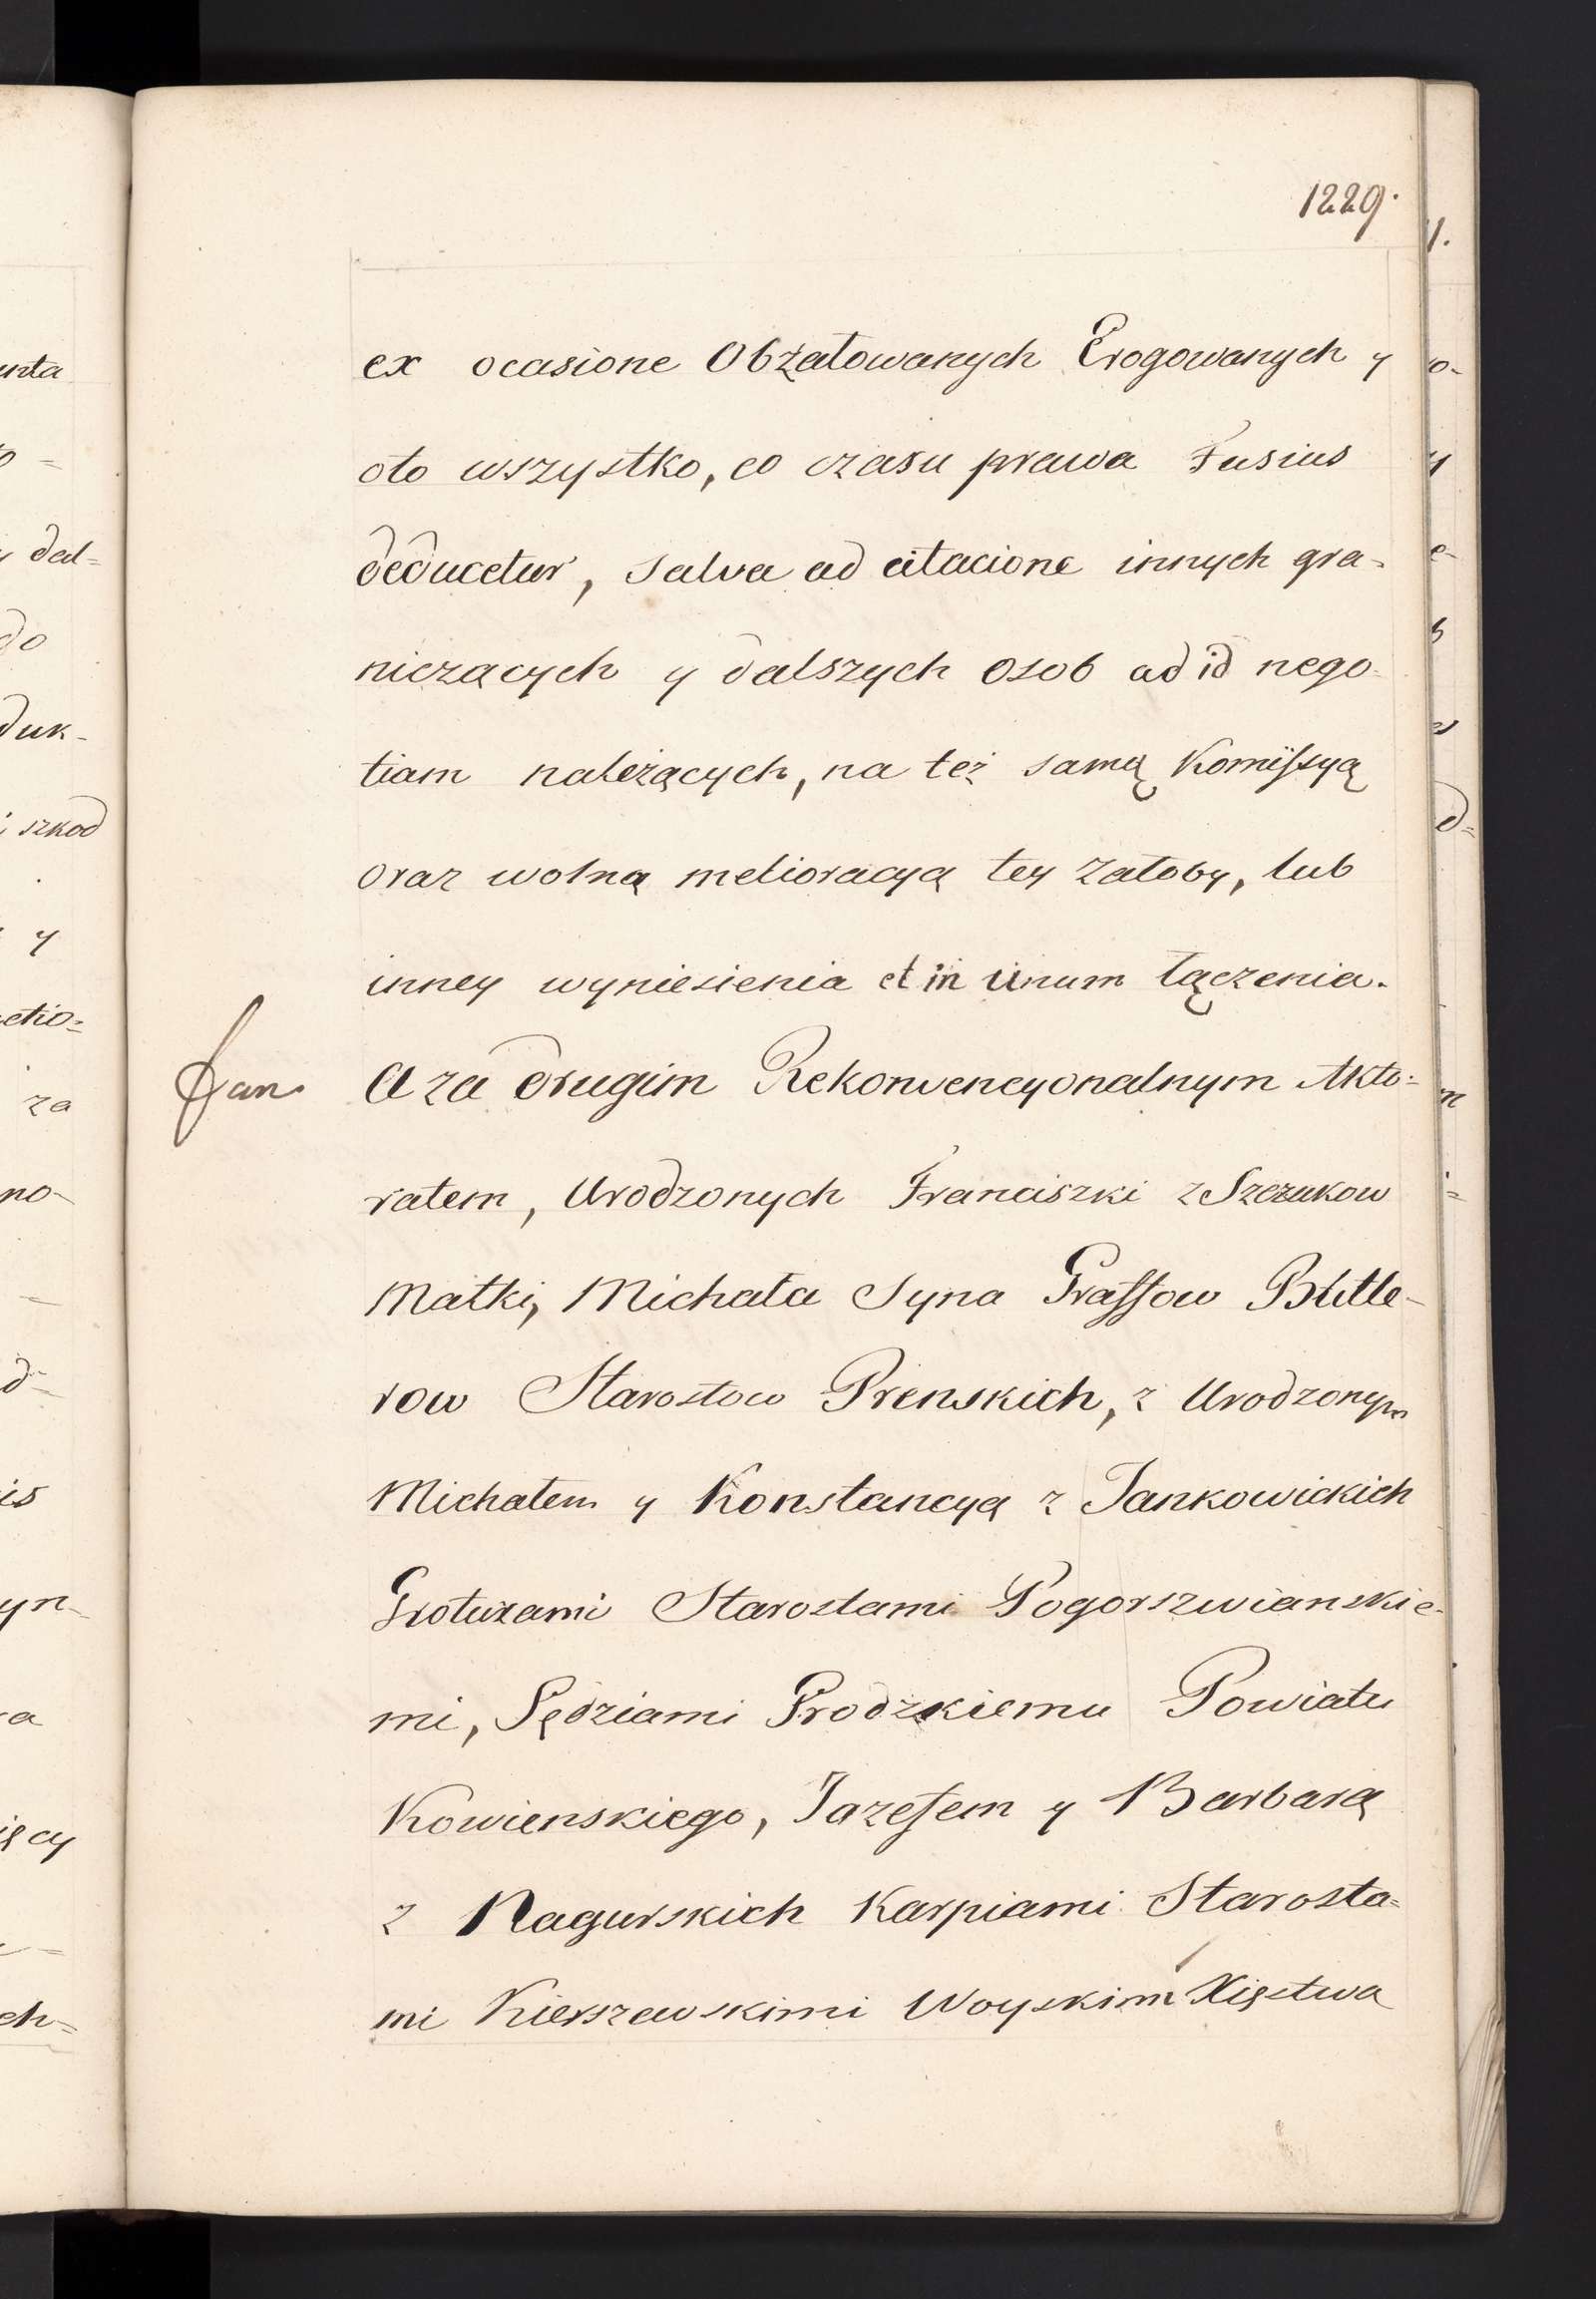 1229.
ex ocasione Obżałowanych Erogowanych y
oto wszystko, co czasu prawa Fusius
deducetur, salva ad citacione innych gra-
niczących y dalszych osob ad id nego-
tiam należących, na też samą Komissyą
oraz wolną melioracyą tey żałoby, lub
inney wyniesienia et in unum łączenia.
A za drugim Rekonwencyonalnym Akto=
ratem, Urodzonych Franciszki z Szczukow
Matki, Michała Syna Graffow Butle-
row Starostow Prenskich, z Urodzonym
Michałem y Konstancyą z Jankowickich
Grotuzami Starostami Pogorszwianskie-
mi, Sędziami Grodzkiemu Powiatu
Kowienskiego, Jozefem y Barbarą
z Nagurskich Karpiami Starosta=
mi Kierszewskimi Woyskim Xięstwa